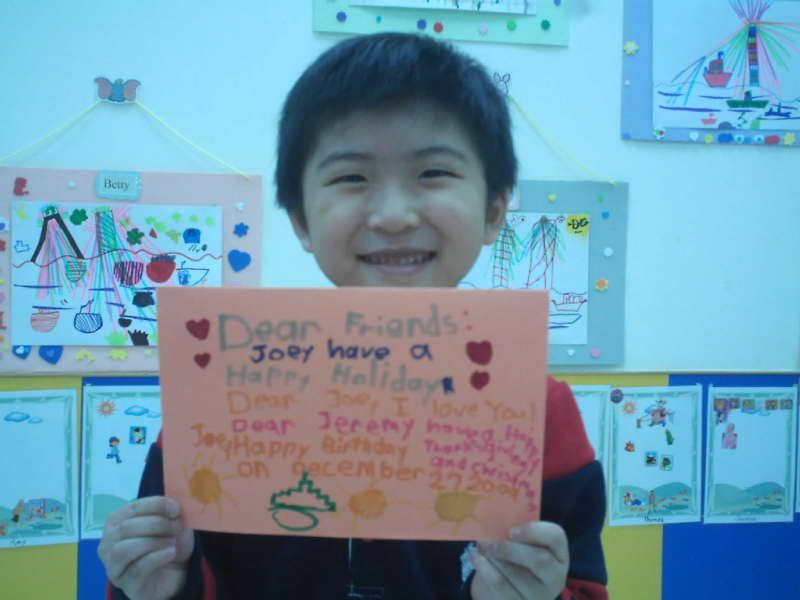 Betty
Dear Friends:
Joey have a
Happy Holiday
Dear Joey I love you!
Dear Jeremy have a Happy
Thanksgiving!
and Christmas
Joey Happy Birthday
on December 27 2009
Thomas